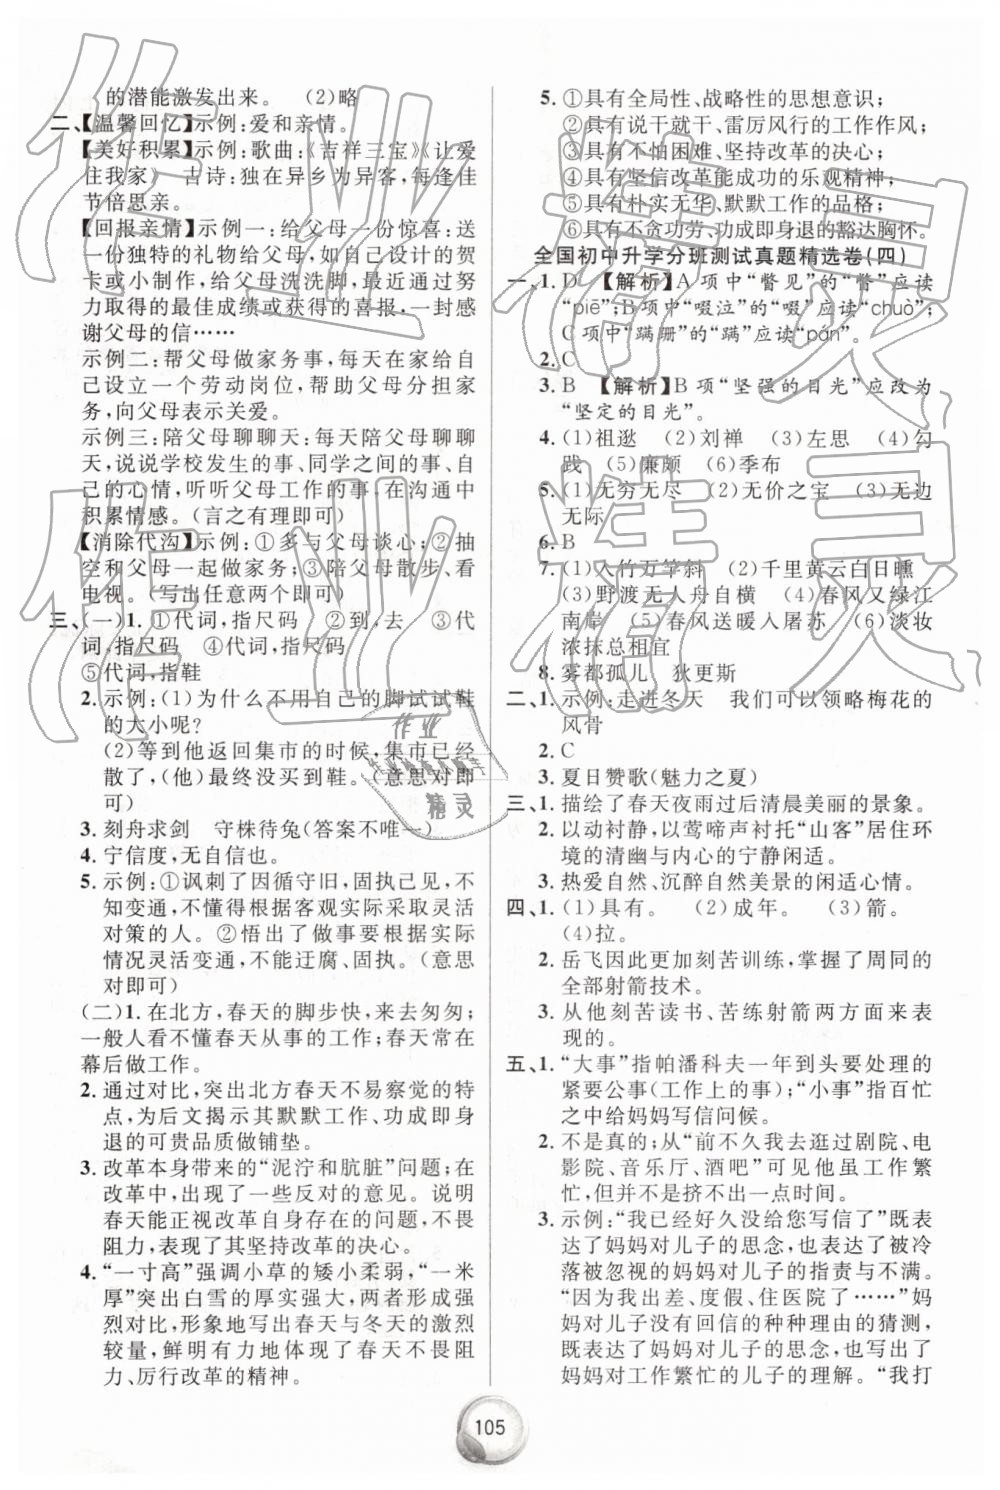 的潜能激发出来。　(2)略
二、【温馨回忆】示例:爱和亲情。
【美好积累】示例:歌曲:《吉祥三宝》《让爱
住我家》　古诗:独在异乡为异客,每逢佳
节倍思亲。
【回报亲情】示例一:给父母一份惊喜:送
一份独特的礼物给父母,如自己设计的贺
卡或小制作;给父母洗洗脚,让父母看看
取得的最佳成绩或获得的喜报,一封感
谢父母的信……
示例二:帮父母做家务事,每天在家给自
己设立一个劳动岗位,帮助父母分担家
务,向父母表示关爱。
示例三:陪父母聊聊天:每天陪父母聊聊
天,说说学校发生的事、同学之间的事、自
己的心情,听听父母工作的事,在沟通中
积累情感。(言之有理即可)
【消除代沟】示例:①多与父母谈心;②抽
空和父母一起做家务;③陪父母散步、看
电视。(写出任意两个即可)
三、(一)1. ①代词,指尺码　②到,去　③代
词,指尺码　④代词,指集市
⑤代词,指鞋
2. 示例:(1)为什么不用自己的脚试试鞋
的大小呢?
(2)等到他返回集市的时候,集市已经
散了,(他)最终没买到鞋。(意思对即
可)
3. 刻舟求剑　守株待兔(答案不唯一)
4. 宁信度,无自信也。
5. 示例:①讽刺了因循守旧,固执己见,不
知变通,不懂得根据客观实际采取灵活
对策的人。②悟出了做事要根据实际
情况灵活变通,不能迂腐、固执。(意思
对即可)
(二)1. 在北方,春天的脚步快,来去匆匆;
一般人看不懂春天从事的工作;春天常在
幕后做工作。
2. 通过对比,突出北方春天不易察觉的特
点,为后文揭示其默默工作、功成即身
退的可贵品质做铺垫。
3. 改革本身带来的“泥泞和肮脏”问题;在
改革中,出现了一些反对的意见。说明
春天能正视改革自身存在的问题,不畏
阻力,表现了其坚持改革的决心。
4. “一寸高”强调小草的矮小柔弱,“一米
厚”突出白雪的厚实强大,两者形成强
烈对比,形象地写出春天与冬天的力量
较量,鲜明有力地体现了春天不畏阻
力、厉行改革的精神。
5. ①具有全局性、战略性的思想意识;
②具有说干就干、雷厉风行的工作作风;
③具有不怕困难、坚持改革的决心;
④具有坚信改革能成功的乐观精神;
⑤具有朴实无华、默默工作的品格;
⑥具有不贪功劳、功成即退的豁达胸怀。
全国初中升学分班测试真题精选卷(四)
一、1. D　【解析】A项中“瞥见”的“瞥”应读
“piē”;B项中“啜泣”的“啜”应读“chuò”;
C项中“蹒跚”的“蹒”应读“pán”。
2. C
3. B　【解析】B项“坚强的目光”应改为
“坚定的目光”。
4. (1)祖逖　(2)刘禅　(3)左思　(4)勾
践　(5)廉颇　(6)季布
5. (1)无穷无尽　(2)无价之宝　(3)无边
无际
6. B
7. (1)入竹万竿斜　(2)千里黄云白日曛
(3)野渡无人舟自横　(4)春风又绿江
南岸　(5)春风送暖入屠苏　(6)淡妆
浓抹总相宜
8. 雾都孤儿　狄更斯
二、1. 示例:走进冬天　我们可以领略梅花的
风骨
2. C
3. 夏日赞歌(魅力之夏)
三、1. 描绘了春天夜雨过后清晨美丽的景象。
2. 以动衬静,以莺啼声衬托“山客”居住环
境的清幽与内心的宁静闲适。
3. 热爱自然、沉醉自然美景的闲适心情。
四、1. (1)具有。　(2)成年。　(3)箭。
(4)拉。
2. 岳飞因此更加刻苦训练,掌握了周同的
全部射箭技术。
3. 从他刻苦读书、苦练射箭两方面来表
现的。
五、1. “大事”指帕潘科夫一年到头要处理的
紧要公事(工作上的事);“小事”指百忙
之中给妈妈写信问候。
2. 不是真的;从“前不久我去逛过剧院、电
影院、音乐厅、酒吧”可见他虽工作繁
忙,但并不是挤不出一点时间。
3. 示例:“我已经好久没给您写信了”既表
达了妈妈对儿子的思念,也表达了被冷
落被忽视的妈妈对儿子的抱怨与不满。
“因为出差、度假、住医院了……”妈
妈对儿子没有回信的种种理由的猜测,
表达了妈妈对儿子的牵挂、担忧,也有
妈妈对工作繁忙的儿子的理解。“我打
105